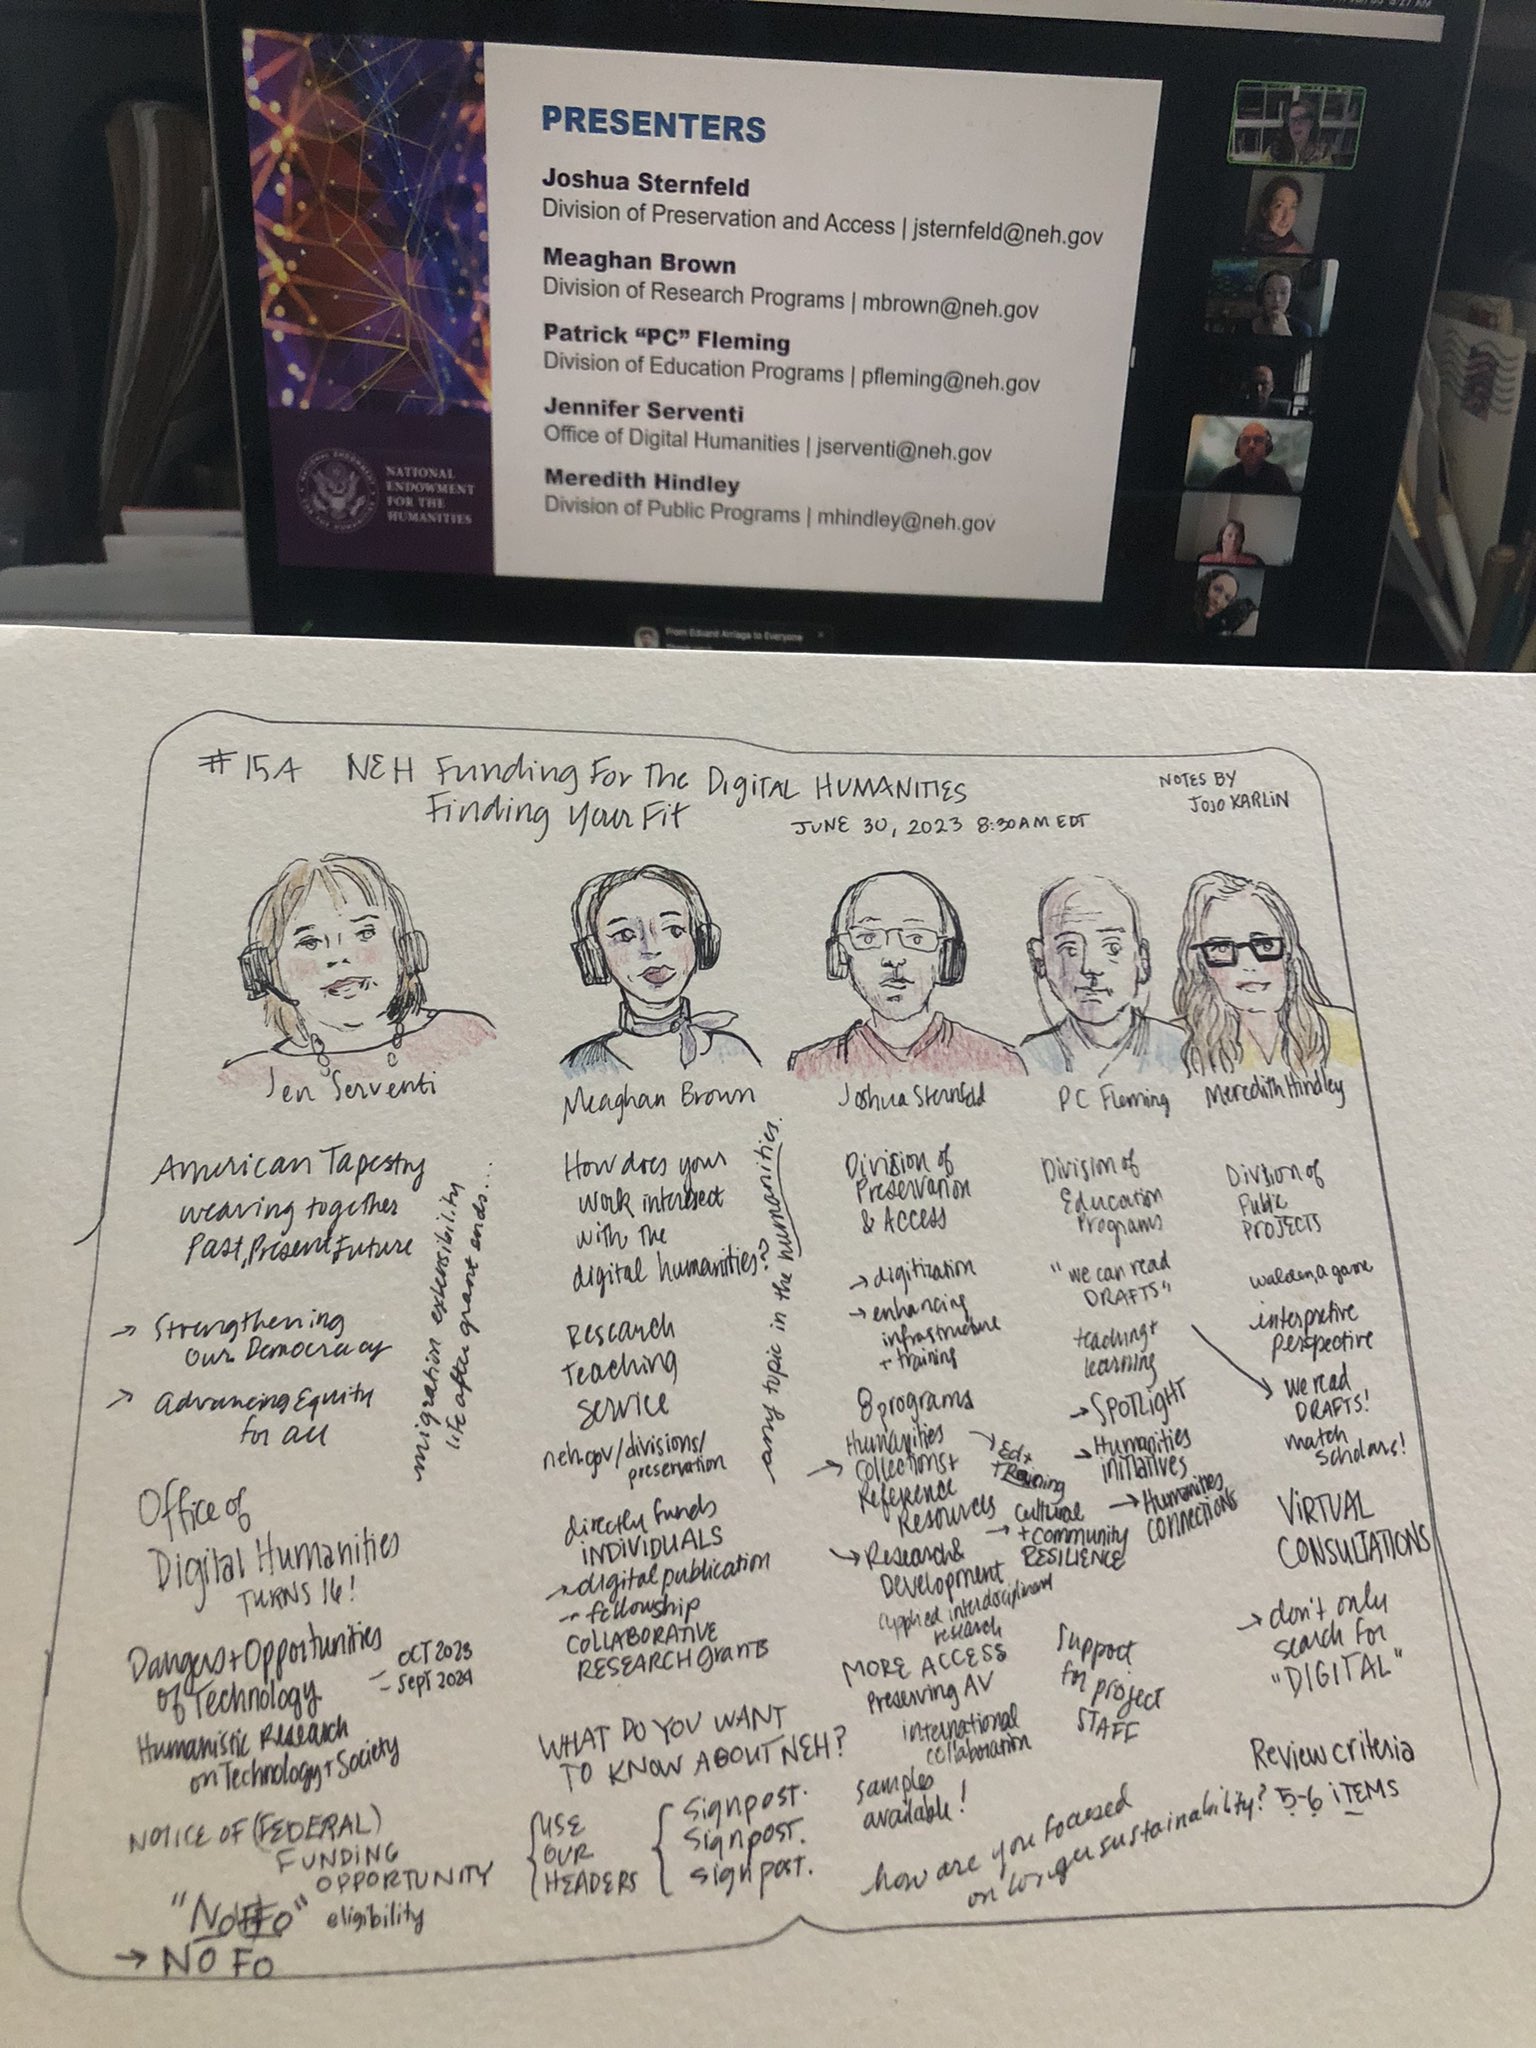 PRESENTERS
Joshua Sternfeld
Division of Preservation and Access | jsternfeld@neh.gov
Meaghan Brown
Division of Research Programs | mbrown@neh.gov
Patrick “PC” Fleming
Division of Education Programs | pfleming@neh.gov
Jennifer Serventi
Office of Digital Humanities | jserventi@neh.gov
Meredith Hindley
Division of Public Programs | mhindley@neh.gov
NATIONAL
ENDOWMENT
FOR THE
HUMANITIES
From Edward Arriaga to Everyone
#15A NEH Funding For The Digital HUMANITIES
Finding Your Fit
JUNE 30, 2023 8:30AM EDT
NOTES BY
JOJO KARLIN
Jen Serventi
American Tapestry
weaving together
Past, Present, Future
→ Strengthening
our Democracy
→ Advancing Equity
for all
migration extensibility
life after grant ends...
Office of
Digital Humanities
TURNS 16!
Dangers + Opportunities
of Technology
- OCT 2023
- Sept 2024
Humanistic Research
on Technology + Society
NOTICE OF (FEDERAL)
FUNDING
OPPORTUNITY
eligibility
→ NOFO
Meaghan Brown
How does your
work intersect
with the
digital humanities?
any topic in the humanities.
Research
Teaching
Service
neh.gov/divisions/
preservation
directly funds
INDIVIDUALS
→ digital publication
→ fellowship
COLLABORATIVE
RESEARCH grants
WHAT DO YOU WANT
TO KNOW ABOUT NEH?
USE
OUR
HEADERS
Signpost.
Signpost.
Signpost.
Joshua Sternfeld
Division of
Preservation
& Access
→ digitization
→ enhancing
infrastructure
+ training
8 programs
→ Humanities
Collections +
Reference
Resources
→ Ed +
Training
→ Cultural
+ Community
RESILIENCE
→ Research &
Development
applied interdisciplinary
research
MORE ACCESS
Preserving AV
international
collaboration
samples
available!
how are you focused
on longer sustainability?
PC Fleming
Division of
Education
Programs
"we can read
DRAFTS"
teaching +
learning
→ SPOTLIGHT
→ Humanities
initiatives
→ Humanities
CONNECTIONS
Support
for project
STAFF
Meredith Hindley
Division of
Public
PROJECTS
walden, a game
interpretive
perspective
→ we read
DRAFTS!
match
scholars!
VIRTUAL
CONSULTATIONS
→ don't only
search for
"DIGITAL"
Review criteria
5-6 ITEMS